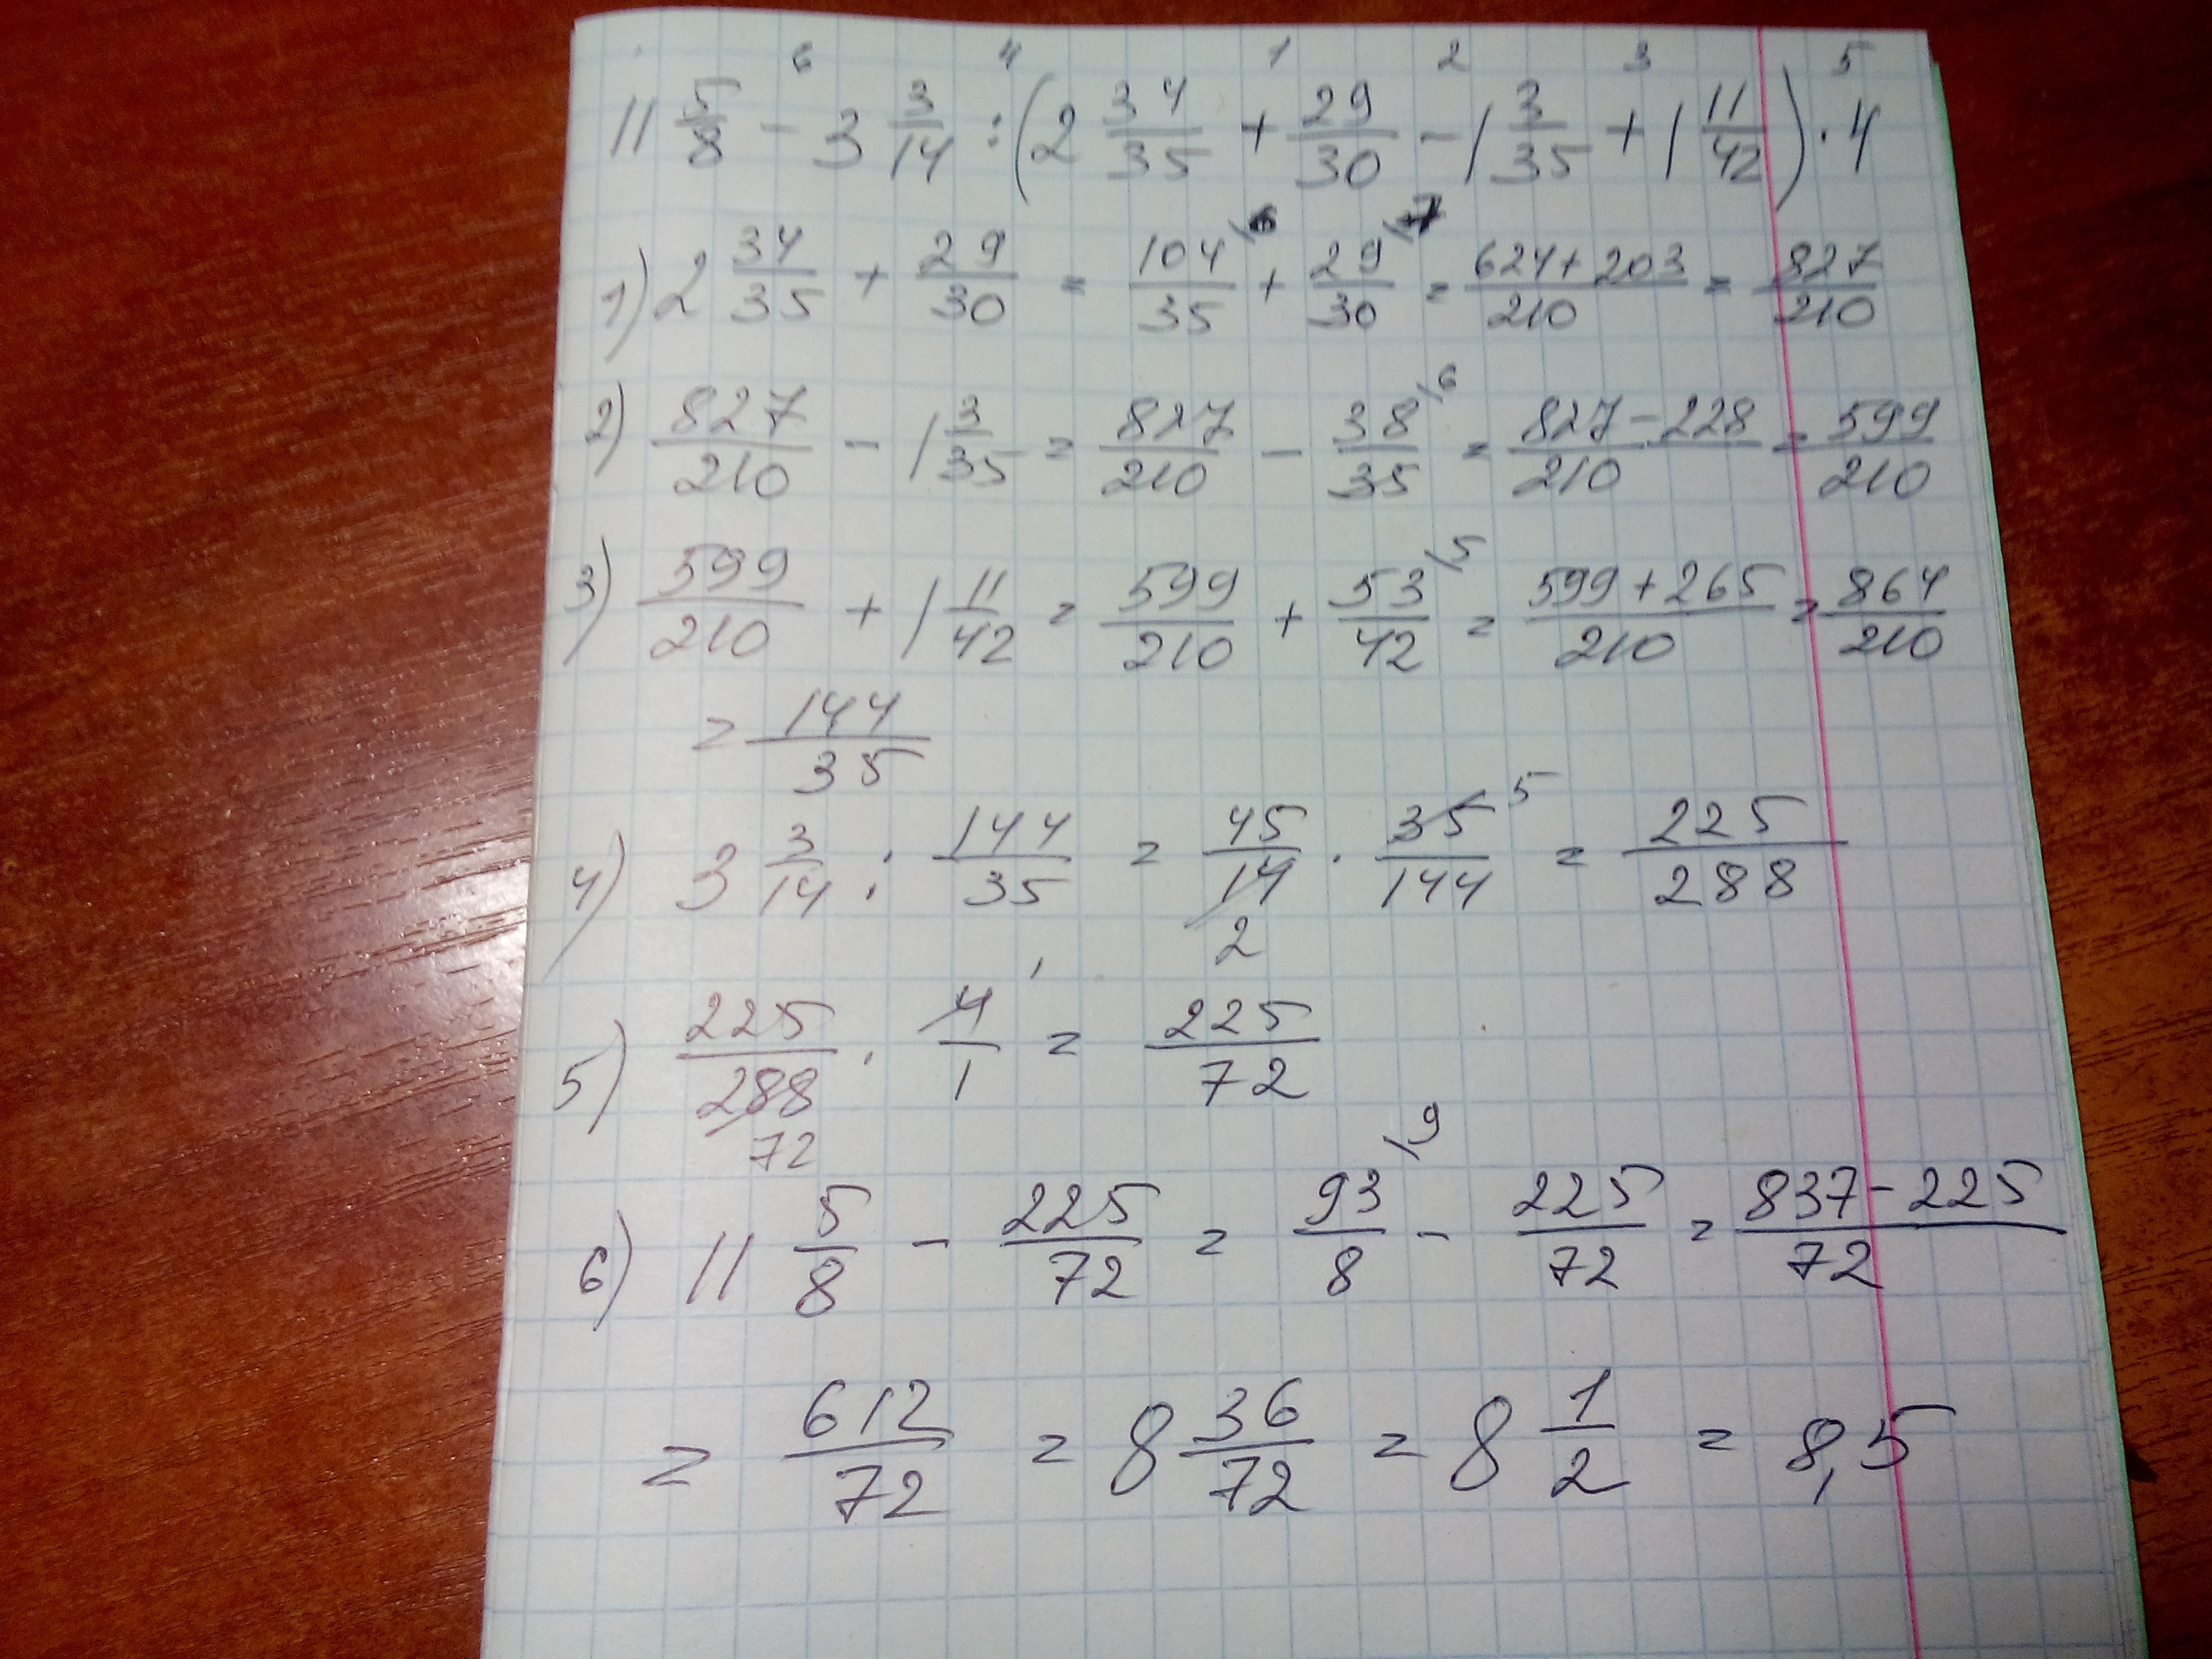 6 4 1 2 3 5
11 5/8 - 3 3/14 : (2 34/35 + 29/30 - 1 3/35 + 1 11/42) · 4
1) 2 34/35 + 29/30 = 104/35 \6 + 29/30 \7 = 624+203/210 = 827/210
2) 827/210 - 1 3/35 = 827/210 - 38/35 \6 = 827-228/210 = 599/210
3) 599/210 + 1 11/42 = 599/210 + 53/42 \5 = 599+265/210 = 864/210
= 144/35
4) 3 3/14 : 144/35 = 45/14 2 · 35 5/144 = 225/288
5) 225/288 72 · 4 1/1 = 225/72
6) 11 5/8 - 225/72 = 93/8 \9 - 225/72 = 837-225/72
= 612/72 = 8 36/72 = 8 1/2 = 8,5